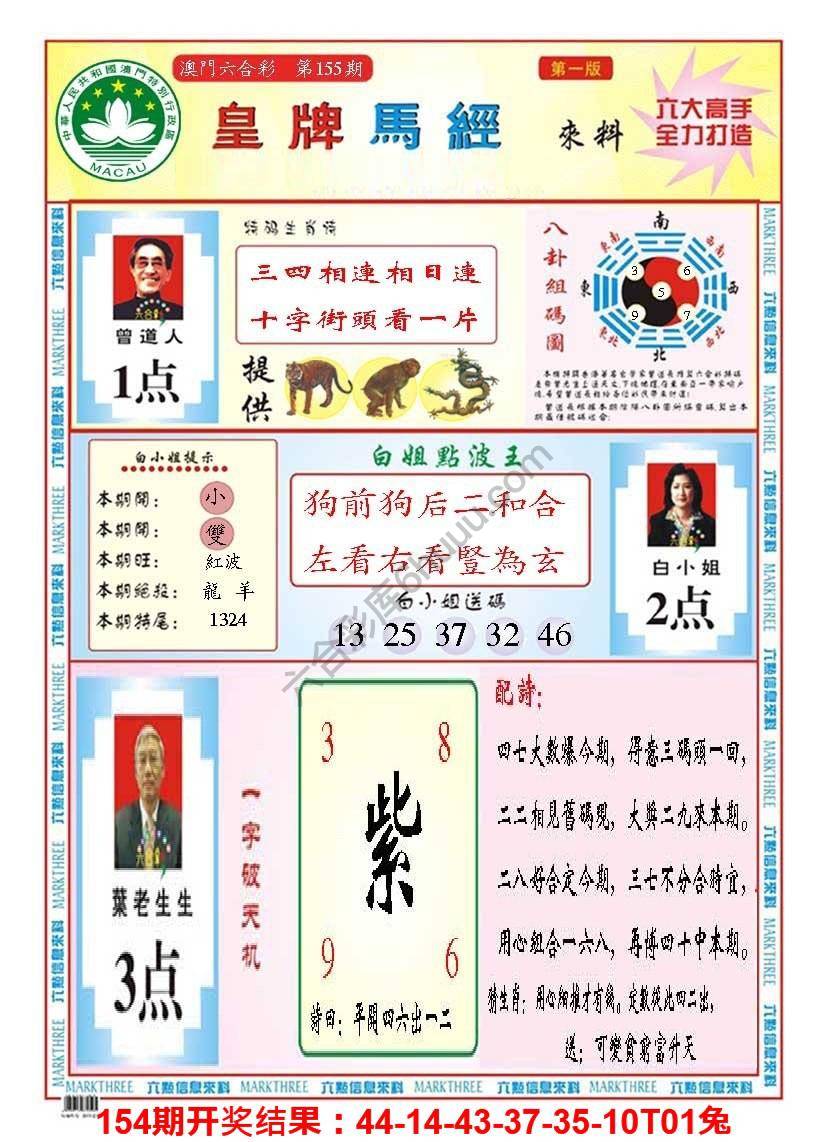 澳門六合彩 第155期
第一版
中華人民共和國澳門特別行政區
MACAU
皇牌馬經
來料
六大高手
全力打造
特码生肖诗
三四相連相日連
十字街頭看一片
提供
曾道人
1点
八卦組碼圖
南
東南 西南
東 西
東北 西北
北
3 6
5
9 7
白小姐提示
本期開: 小
本期開: 雙
本期旺: 紅波
本期絕殺: 龍 羊
本期特尾: 1324
白姐點波王
狗前狗后二和合
左看右看豎為玄
白小姐送碼
13 25 37 32 46
白小姐
2点
葉老生生
3点
一字破天机
3 8
紫
9 6
詩曰: 平開四六出一二
配詩:
四七大數爆今期, 得意三碼頭一回,
二二相見舊碼現, 大與二九來本期。
二八好合定今期, 三七不分合時宜,
用心組合一六八, 再博四十中本期。
猜生肖: 用心細推才有錢。定數從此四二出,
送: 可變貧窮富升天
MARKTHREE 六點信息來料
六合彩库6htuku.com
154期开奖结果：44-14-43-37-35-10T01兔